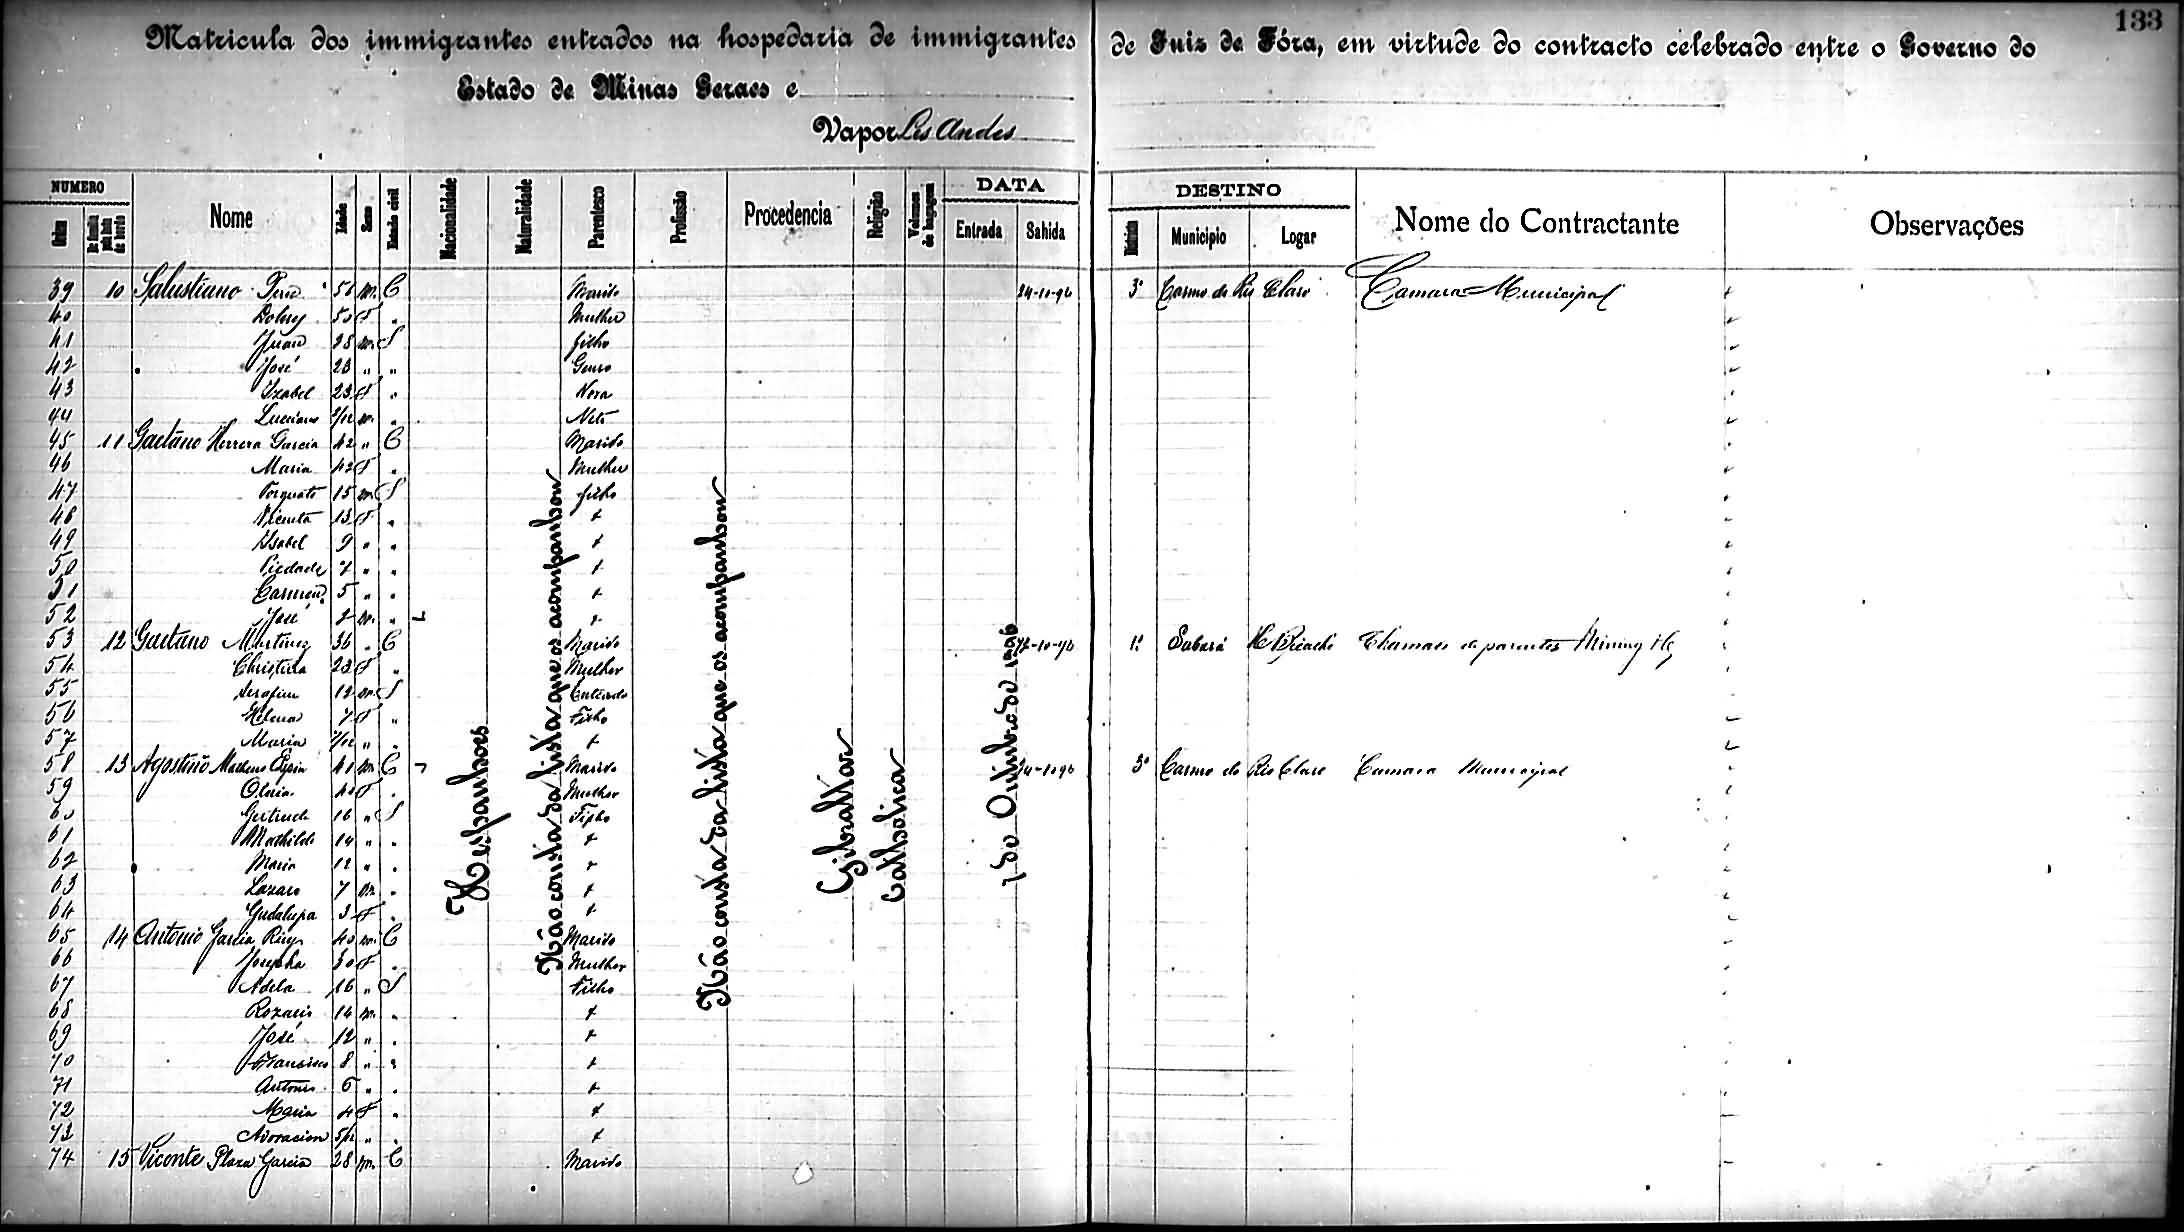 133
Matricula dos immigrantes entrados na hospedaria de immigrantes de Juiz de Fóra, em virtude do contracto celebrado entre o Governo do
Estado de Minas Geraes e
Vapor Les Andes
NUMERO DATA DESTINO
Ordem Nome Idade Sexo Estado civil Nacionalidade Naturalidade Parentesco Profissão Procedencia Religião Volumes de bagagem Entrada Sahida Districto Municipio Logar Nome do Contractante Observações
39 10 Salustiano 50 m. C Marido 24-10-96 3º Carmo do Rio Claro Camara Municipal
40 50 F " Mulher
41 Juan 28 m. S filho
42 José 23 " " Genro
43 Izabel 23 F " Nora
44 Luciano m. " Neto
45 11 Gaetano Herrera Garcia 42 " C Marido
46 Maria 42 F " Mulher
47 Torquato 15 m. S filho
48 Vicenta 13 F " +
49 Isabel 9 " " +
50 Piedade 7 " " +
51 Carmen 5 " " +
52 José 2 m. " +
53 12 Gaetano Martinez 36 " C Marido 1º Sabará Chamado de parentes Mining
54 Christina 23 F " Mulher
55 Serafim 12 m. S Enteado
56 Helena 7 F " Filho
57 Maria " " +
58 13 Agostinho Matheus 41 m. C Marido 24-10-96 3º Carmo do Rio Claro Camara Municipal
59 40 F " Mulher
60 Gertrude 16 " S Filho
61 Mathilde 14 " " +
62 Maria 12 " " +
63 Lazaro 7 m. " +
64 Gudalupa 3 F " +
65 14 Antonio Garcia 40 m. C Marido
66 Josepha 30 F " Mulher
67 Adela 16 " S Filho
68 Rozario 14 m. " +
69 José 12 " " +
70 Francisco 8 " " +
71 Antonio 6 " " +
72 Maria 4 F " +
73 Adoracion " " +
74 15 Viconte Plaza Garcia 28 m. C Marido
Hespanhoes
Não consta da lista que os acompanhou
Não consta da lista que os acompanhou
Gibraltar
Catholica
7 de Outubro de 1896